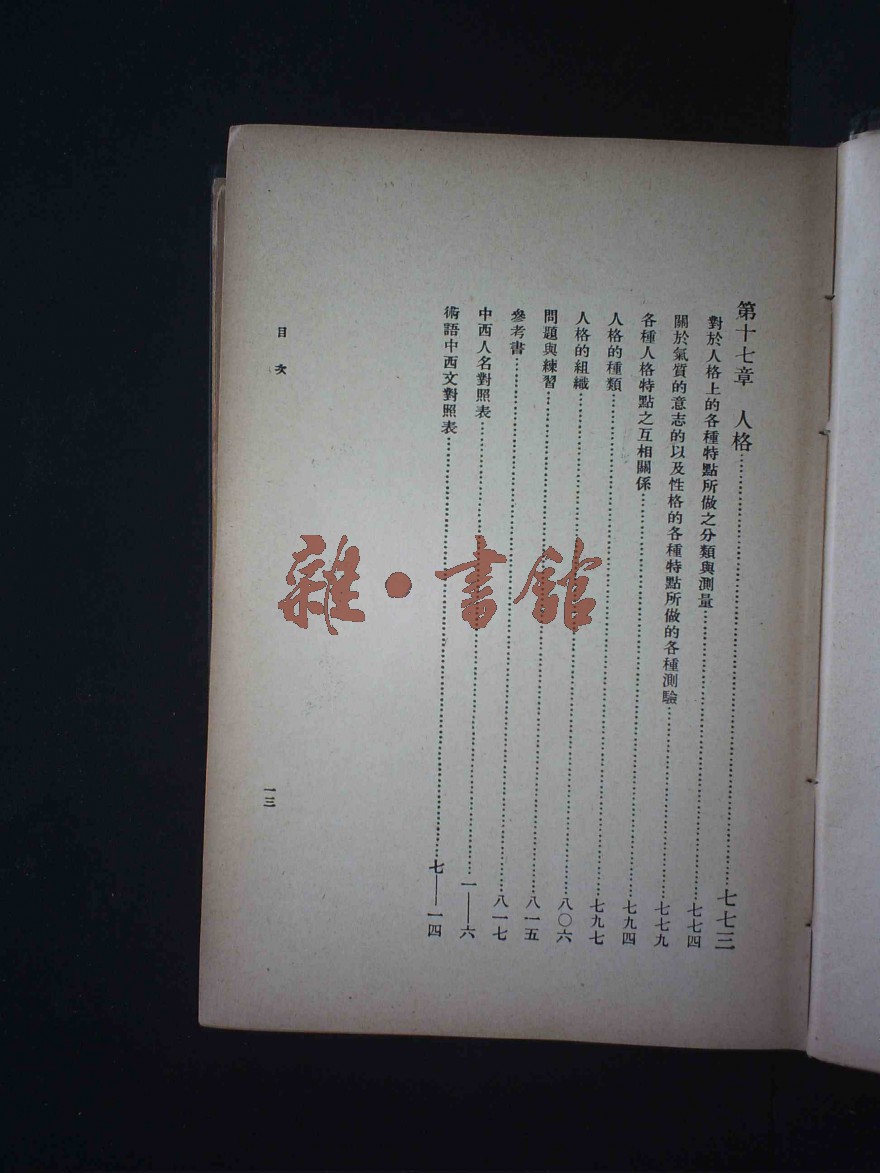 第十七章　人格……七七三
對於人格上的各種特點所做之分類與測量……七七四
關於氣質的意志的以及性格的各種特點所做的各種測驗……七七九
各種人格特點之互相關係……七九四
人格的種類……七九七
人格的組織……八〇六
問題與練習……八一五
參考書……八一七
中西人名對照表……一——六
術語中西文對照表……七——一四
目次
一三
雜·書館